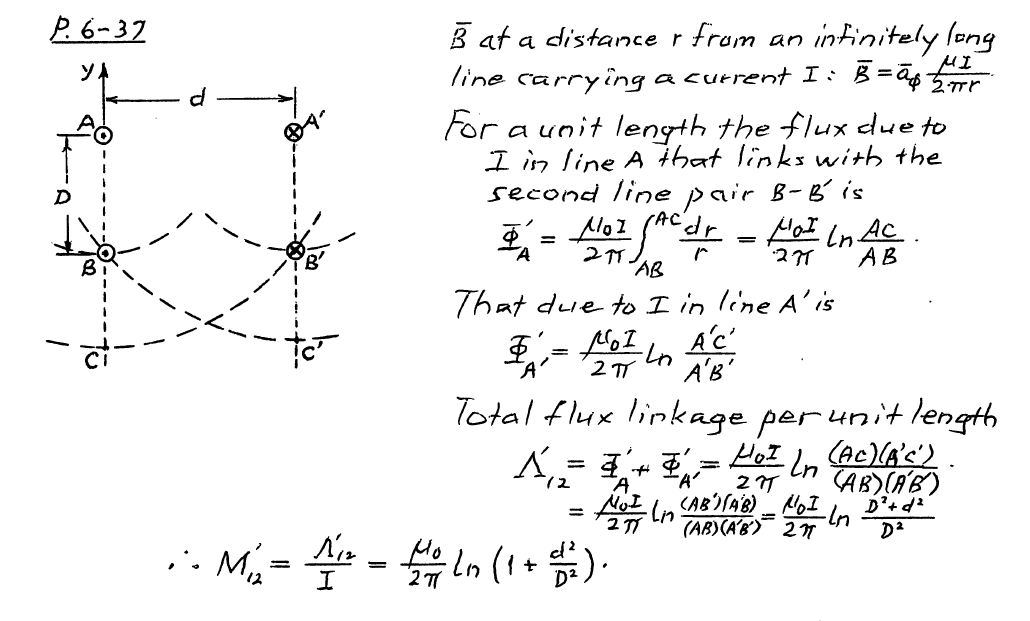 P. 6-37
y
d
A
A'
D
B
B'
C
C'
B̄ at a distance r from an infinitely long
line carrying a current I : B̄ = ā_ϕ μI/2πr
For a unit length the flux due to
I in line A that links with the
second line pair B-B' is
Φ'_A = μ₀I/2π ∫_AB^AC dr/r = μ₀I/2π ln AC/AB .
That due to I in line A' is
Φ'_A' = μ₀I/2π ln A'C'/A'B'
Total flux linkage per unit length
Λ'₁₂ = Φ'_A + Φ'_A' = μ₀I/2π ln (AC)(A'C')/(AB)(A'B') .
= μ₀I/2π ln (AB')(A'B)/(AB)(A'B') = μ₀I/2π ln D²+d²/D²
∴ M'₁₂ = Λ'₁₂/I = μ₀/2π ln (1 + d²/D²).